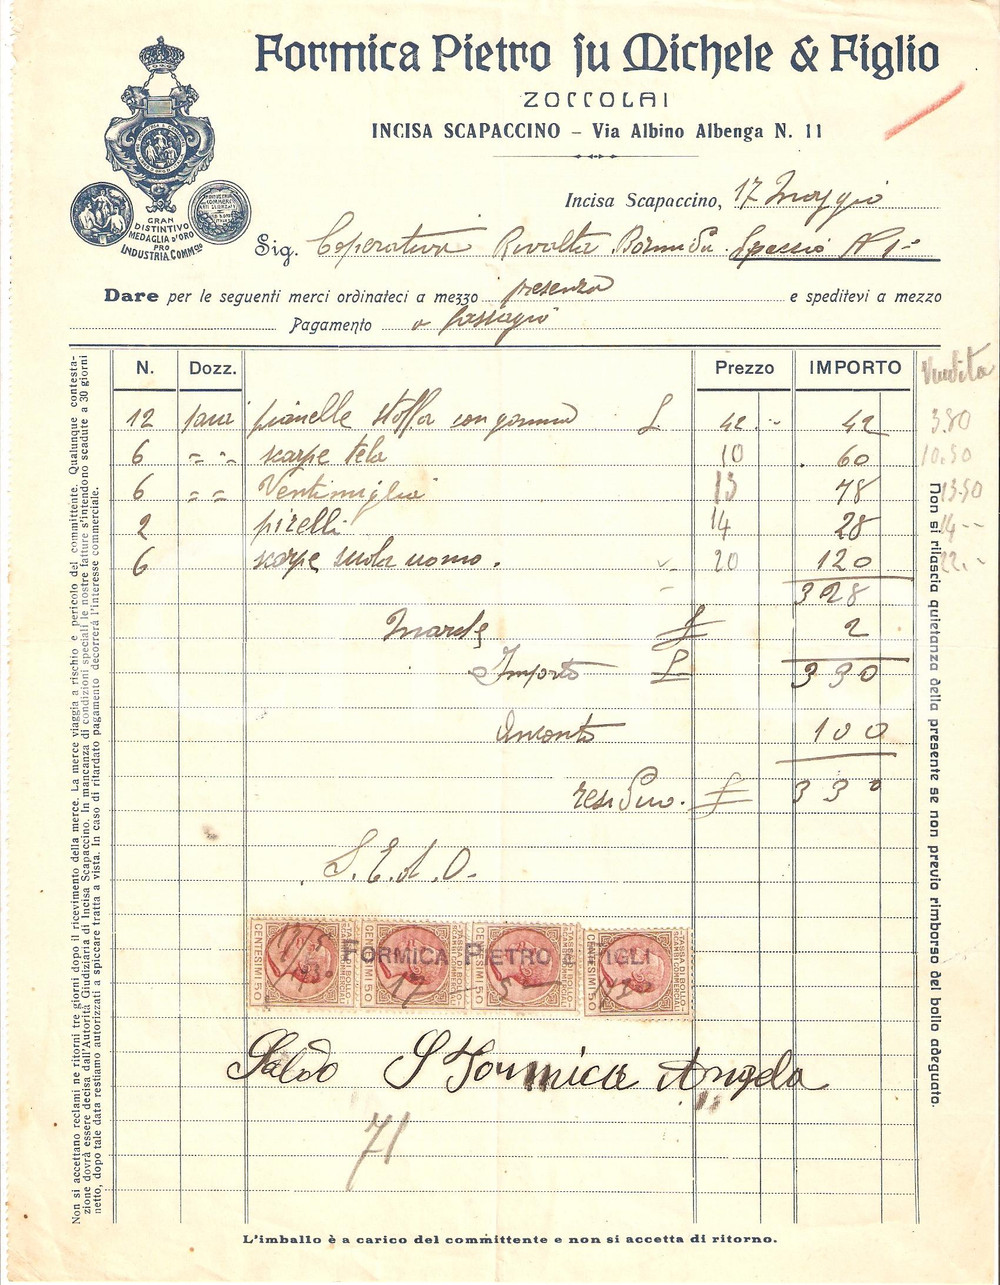 Formica Pietro fu Michele & Figlio
ZOCCOLAI
INCISA SCAPACCINO – Via Albino Albenga N. 11
GRAN
DISTINTIVO
MEDAGLIA D'ORO
PRO
INDUSTRIA COMMcio
Incisa Scapaccino, 17 Maggio
Sig. Coperativa Rivalta Bormida. Spaccio N 1=
Dare per le seguenti merci ordinateci a mezzo presenza e speditevi a mezzo
Pagamento a
N. Dozz. Prezzo IMPORTO Vendita
12 paia pianelle stoffa con gomma L 42.- 42 3.80
6 " " scarpe tela 10 60 10.50
6 " " Ventimiglia 13 78 13.50
2 pirelli 14 28 14--
6 scarpe suola uomo. 20 120 22.-
328
Marche £ 2
Importo £ 330
Acconto 100
residuo. £ 330
S.E.d.O.
CENTESIMI 50 TASSA DI BOLLO CENTESIMI 50 TASSA DI BOLLO CENTESIMI 50 TASSA DI BOLLO CENTESIMI 50 TASSA DI BOLLO
FORMICA PIETRO & FIGLI
17/5 1930 17 5
Saldo Formica Angela
71
L'imballo è a carico del committente e non si accetta di ritorno.
Non si accettano reclami ne ritorni tre giorni dopo il ricevimento della merce. La merce viaggia a rischio e pericolo del committente. Qualunque contesta-
zione dovrà essere decisa dall'Autorità Giudiziaria di Incisa Scapaccino. In mancanza di condizioni speciali le nostre fatture s'intendono scadute a 30 giorni
netto, dopo tale data restiamo autorizzati a spiccare tratta a vista. In caso di ritardato pagamento decorrerà l'interesse commerciale.
Non si rilascia quietanza della presente se non previo rimborso del bollo adeguato.